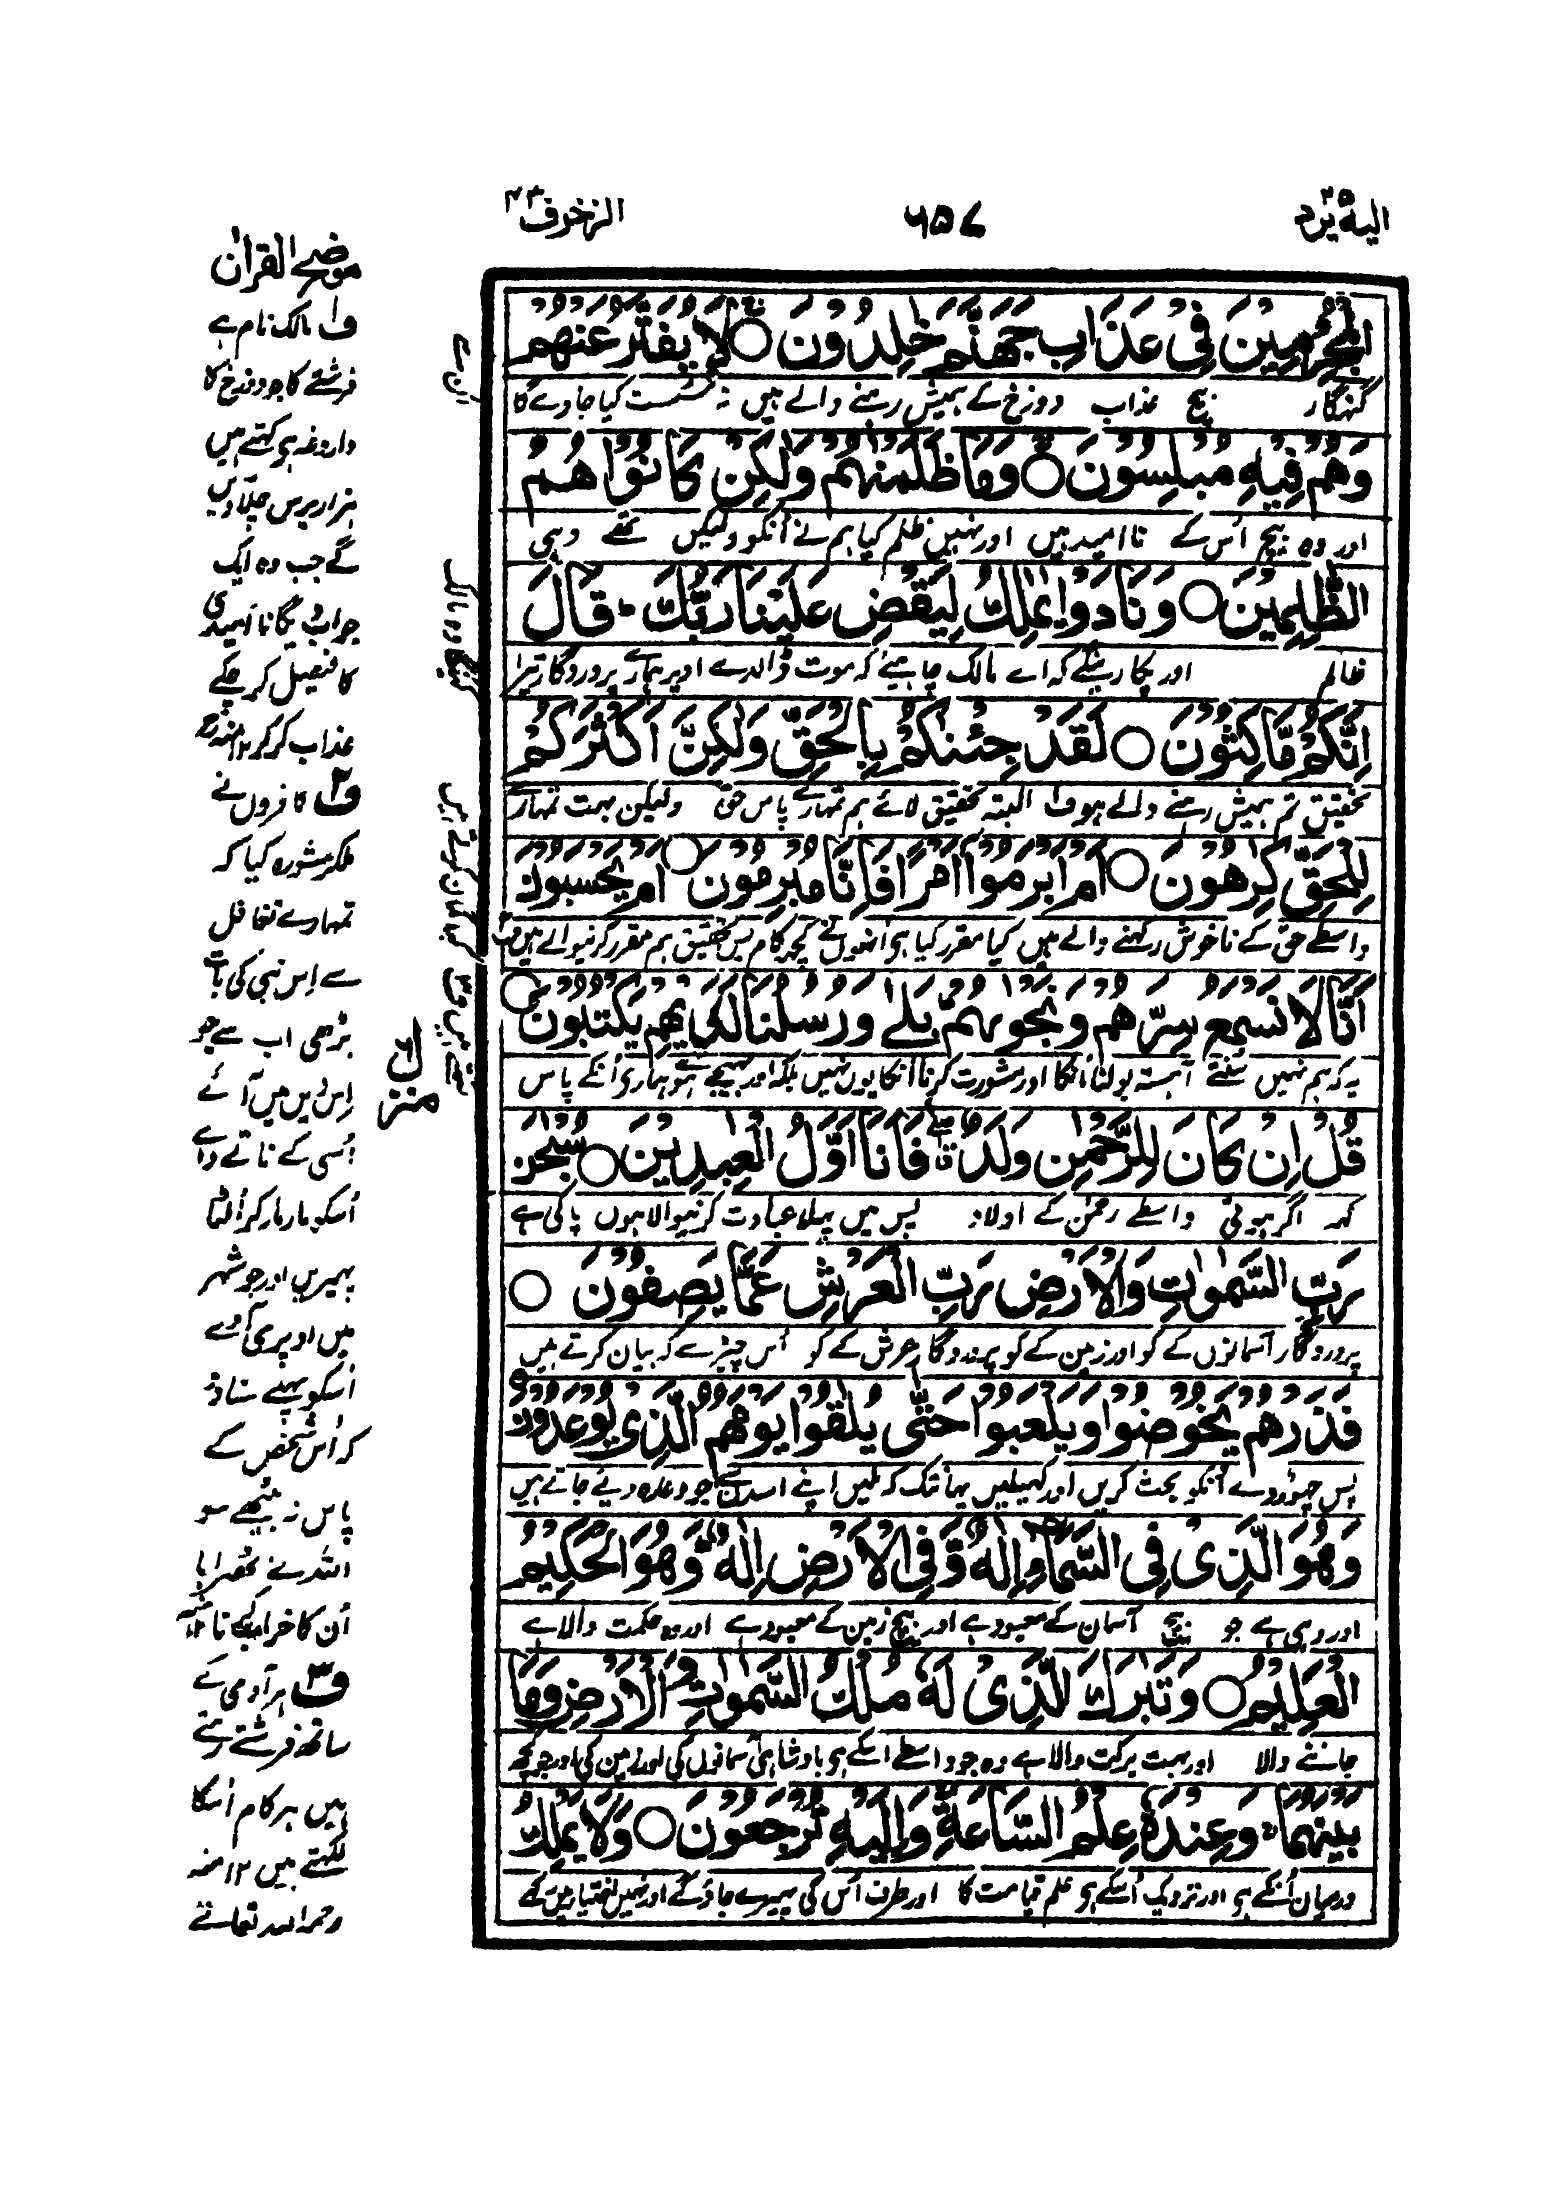 الیه یرد ۲۵
۶۵۷
الزخرف ۴۳
الْمُجْرِمِیْنَ فِیْ عَذَابِ جَهَنَّمَ خٰلِدُوْنَ ○ لَا یُفَتَّرُ عَنْهُمْ
گنہگار بیچ عذاب دوزخ کے ہمیش رہنے والے ہیں نہ سست کیا جاوے گا
وَهُمْ فِیْهِ مُبْلِسُوْنَ ○ وَمَا ظَلَمْنٰهُمْ وَلٰكِنْ كَانُوْا هُمُ
اور وہ بیچ اُس کے ناامید ہیں اور نہیں ظلم کیا ہم نے اُنکو ولیکن تھے وہی
الظّٰلِمِیْنَ ○ وَنَادَوْا یٰمٰلِكُ لِیَقْضِ عَلَیْنَا رَبُّكَ ؕ قَالَ
ظالم اور پکارینگے کہ اے مالک چاہیے کہ موت ڈالدے اوپر ہمارے پروردگار تیرا
اِنَّكُمْ مّٰكِثُوْنَ ○ لَقَدْ جِئْنٰكُمْ بِالْحَقِّ وَلٰكِنَّ اَكْثَرَكُمْ
تحقیق تم ہمیش رہنے والے ہو ف۱ البتہ تحقیق لائے ہم تمہارے پاس حق ولیکن بہت تمہارے
لِلْحَقِّ كٰرِهُوْنَ ○ اَمْ اَبْرَمُوْا اَمْرًا فَاِنَّا مُبْرِمُوْنَ ○ اَمْ یَحْسَبُوْنَ
واسطے حق کے ناخوش رکھنے والے ہیں کیا مقرر کیا ہی انھوں نے کچھ کام پس تحقیق ہم مقرر کرنیوالے ہیں ف۲
اَنَّا لَا نَسْمَعُ سِرَّهُمْ وَنَجْوٰىهُمْ بَلٰے وَرُسُلُنَا لَدَیْهِمْ یَكْتُبُوْنَ ○
یہ کہ ہم نہیں سُنتے آہستہ بولنا اُنکا اور مشورت کرنا اُنکا یوں نہیں بلکہ اور بھیجے ہوئے ہماری اُنکے پاس
قُلْ اِنْ كَانَ لِلرَّحْمٰنِ وَلَدٌ فَاَنَا اَوَّلُ الْعٰبِدِیْنَ ○ سُبْحٰنَ
کہہ اگر ہوتی واسطے رحمٰن کے اولاد پس میں پہلا عبادت کرنیوالا ہوں پاکی ہے
رَبِّ السَّمٰوٰتِ وَالْاَرْضِ رَبِّ الْعَرْشِ عَمَّا یَصِفُوْنَ ○
پروردگار آسمانوں کے کو اور زمین کے کو پروردگار عرش کے کو اُس چیز سے کہ بیان کرتے ہیں
فَذَرْهُمْ یَخُوْضُوْا وَیَلْعَبُوْا حَتّٰی یُلٰقُوْا یَوْمَهُمُ الَّذِیْ یُوْعَدُوْنَ ○
پس چھوڑ دے اُنکو بحث کریں اور کھیلیں یہانتک کہ ملیں اپنے اسدن سے جو وعدہ دیئے جاتے ہیں
وَهُوَ الَّذِیْ فِی السَّمَآءِ اِلٰهٌ وَّفِی الْاَرْضِ اِلٰهٌ وَهُوَ الْحَكِیْمُ
اور وہی ہے جو بیچ آسمان کے معبود ہے اور بیچ زمین کے معبود ہے اور وہ حکمت والا ہے
الْعَلِیْمُ ○ وَتَبٰرَكَ الَّذِیْ لَهٗ مُلْكُ السَّمٰوٰتِ وَالْاَرْضِ وَمَا
جاننے والا اور بہت برکت والا ہے وہ جو واسطے اسکے ہی بادشاہی آسمانوں کی اور زمین کی اور جو کچھ
بَیْنَهُمَا ۚ وَعِنْدَهٗ عِلْمُ السَّاعَةِ وَاِلَیْهِ تُرْجَعُوْنَ ○ وَلَا یَمْلِكُ
درمیان اُنکے ہی اور نزدیک اُسکے ہی علم قیامت کا اور طرف اُس کی پھیرے جاؤگے اور نہیں اختیار میں رکھتے
اُن سے
کہیگا وہ مالک
لکھتے ہیں ف۳
منزل ۶
موضح القرآن
ف۱ مالک نام ہے
فرشتے کا جو دوزخ کا
داروغہ ہی کہتے ہیں
ہزار برس چلّاویں
گے جب وہ ایک
جواب دیگا نااُمیدی
کا فیصل کرچکے
عذاب کر کر ۱۲ منہ رح
ف۲ کافروں نے
ملکر مشورہ کیا کہ
تمہارے تغافل
سے اِس نبی کی بات
بڑھی اب سے جو
اِس دین میں آئے
اُسی کے ناتے والے
اُسکو مار مار کر اُلٹا
پھیریں اور جو شہر
میں اوپری آوے
اُسکو پہلے سنادو
کہ اُس شخص کے
پاس نہ بیٹھے سو
اللہ نے ٹھہرایا
اُن کا خراب کرنا ۱۲ منہ
ف۳ ہر آدمی کے
ساتھ فرشتے رہتے
ہیں ہر کام اُسکا
لکھتے ہیں ۱۲ منہ
رحمہ اللہ تعالےٰ